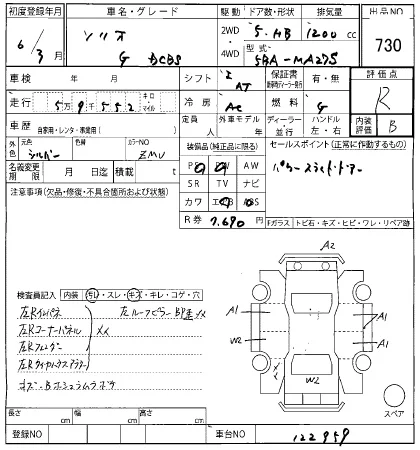 初度登録年月 車名・グレード 駆動 ドア数・形状 排気量 出品NO
6/3月 ソリオ G DCBS 2WD 4WD 5.HB 1200 cc 730
型式 5BA-MA27S
車検 年 月 シフト AT 保証書 有・無 評価点 R
走行 5万9千552 キロ・マイル 冷房 AC 燃料 G
車歴 自家用・レンタ・事業用( ) 定員 人 外車モデル年 ディーラー・並行 ハンドル 左・右 内装評価 B
外色 元色 シルバー 色替 カラーNO ZMV 装備品(純正品に限る) セールスポイント(正常に作動するもの)
名義変更期限 月 日迄 積載 t PS PW AW パワースライドドアー
注意事項(欠品・修復・不具合箇所および状態) SR TV ナビ
カワ エアB ABS
R券 7,690 円 Fガラス トビ石・キズ・ヒビ・ワレ・リペア跡
A2
検査員記入 内装 汚レ・スレ・キズ・キレ・コゲ・穴
左Rインパネ 左ルーフピラーBP重 メメ A1 A1
左Rコーナーパネル メメ
左Rフェンダー W2 A1
左Rタイヤハウスアウター W2
スペア
長さ cm 幅 cm 高さ cm
登録NO 車台NO 122959